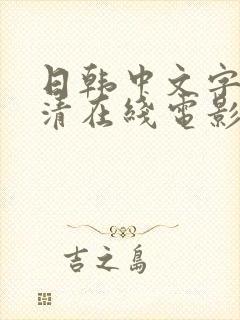 日韩中文字
清在綫電影
吉之島